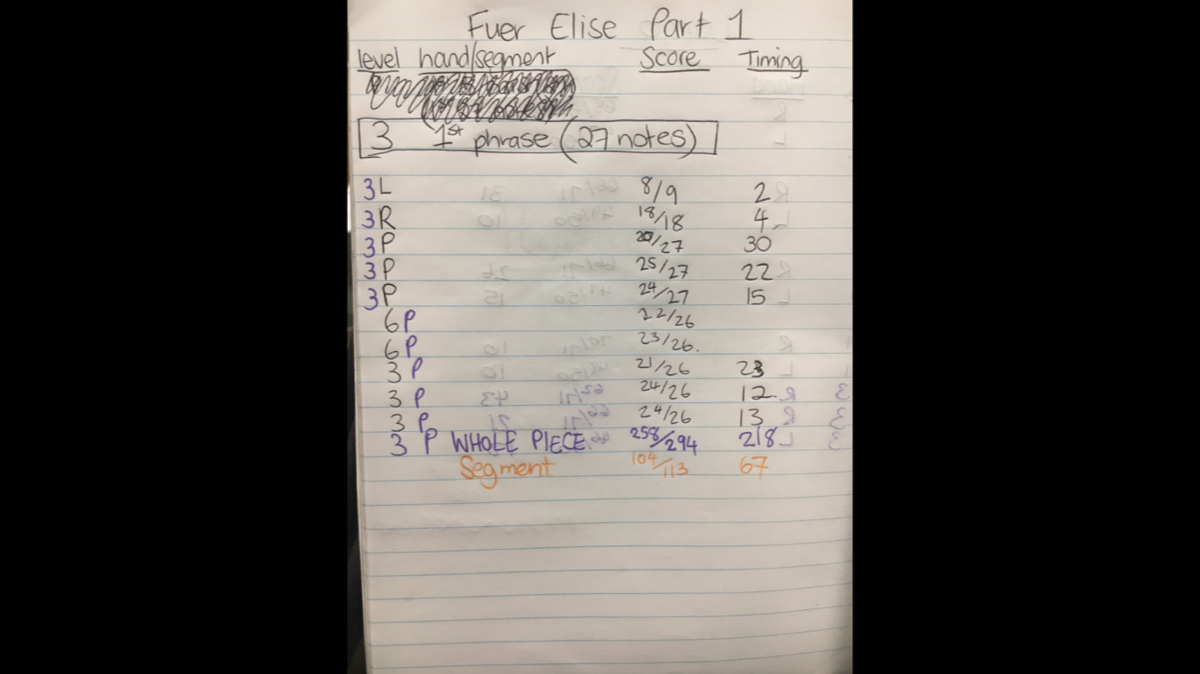 Fuer Elise Part 1
level hand/segment Score Timing
3 1st phrase (27 notes)
3L 8/9 2
3R 18/18 4
3P 27 30
3P 25/27 22
3P 24/27 15
6P 22/26
6P 23/26.
3P 21/26 23
3P 24/26 12
3P 24/26 13
3 P WHOLE PIECE 258/294 218
Segment 104/113 67